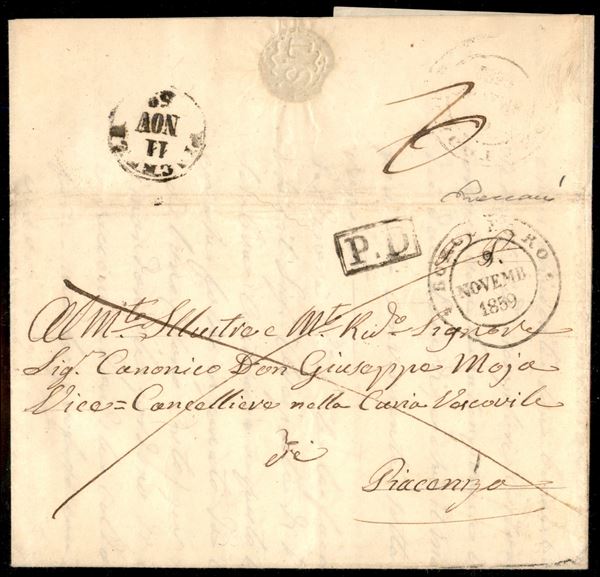 11
NOV
59
P.D
9.
NOVEMB
1859
Al Mto. Illustre e Mto. Rvdo. Signore
Sigr. Canonico Don Giuseppe Moja
Vice=Cancelliere nella Curia Vescovile
di
Piacenza